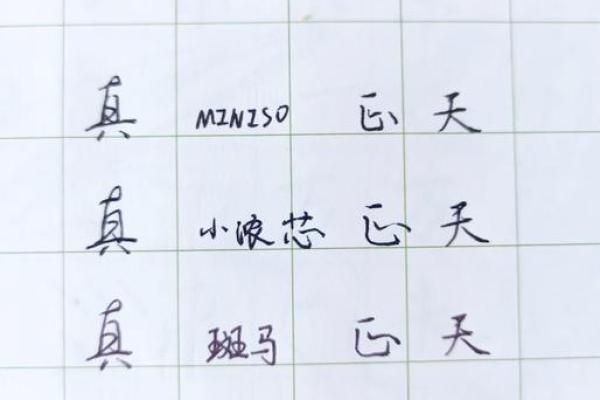 真 MINISO 正 天
真 小浓芯 正 天
真 斑马 正 天